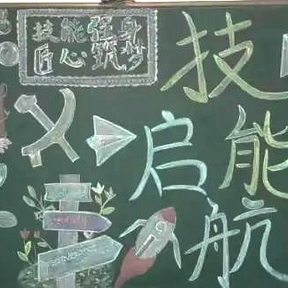 技能强身
匠心筑梦
技能
启航